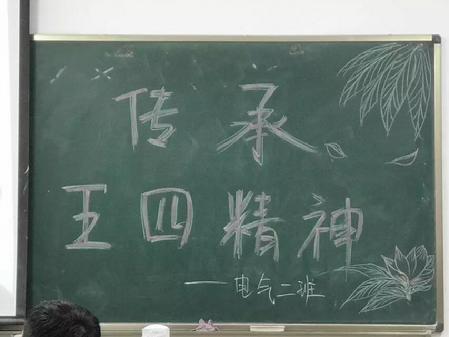 传承
王四精神
——电气二班